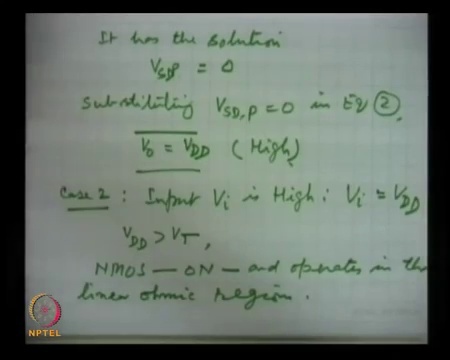 It has the solution
V_SDP = 0
Substituting V_SD,P = 0 in Eq (2),
V_0 = V_DD (High)
Case 2 : Input V_i is High : V_i = V_DD
V_DD > V_T,
NMOS — ON — and operates in the
linear ohmic region.
NPTEL